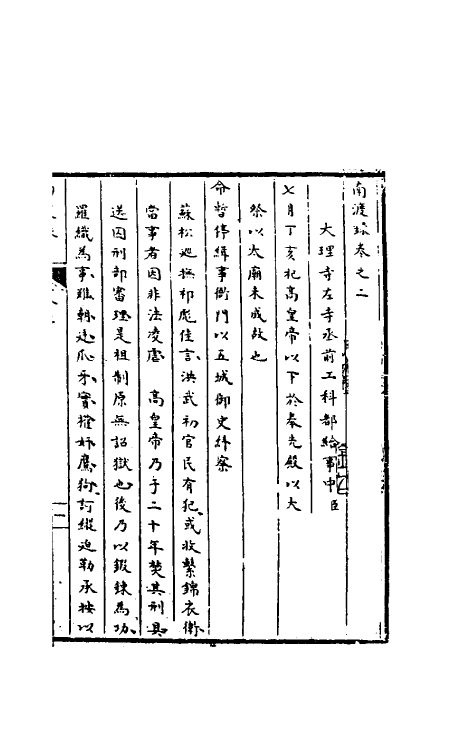 南渡錄卷之二
大理寺左寺丞前工科都給事中臣
七月丁亥祀高皇帝以下於奉先殿以大
祭以太廟未成故也
命暫停緝事衙門以五城御史糾察
蘇松巡撫祁彪佳言洪武初官民有犯或收繫錦衣衛
當事者因非法凌虐 高皇帝乃于二十年焚其刑具
送囚刑部審理是祖制原無詔獄也後乃以鍛鍊為功
羅織為事雖朝廷爪牙實權奸鷹狗討縱迫勒承按以